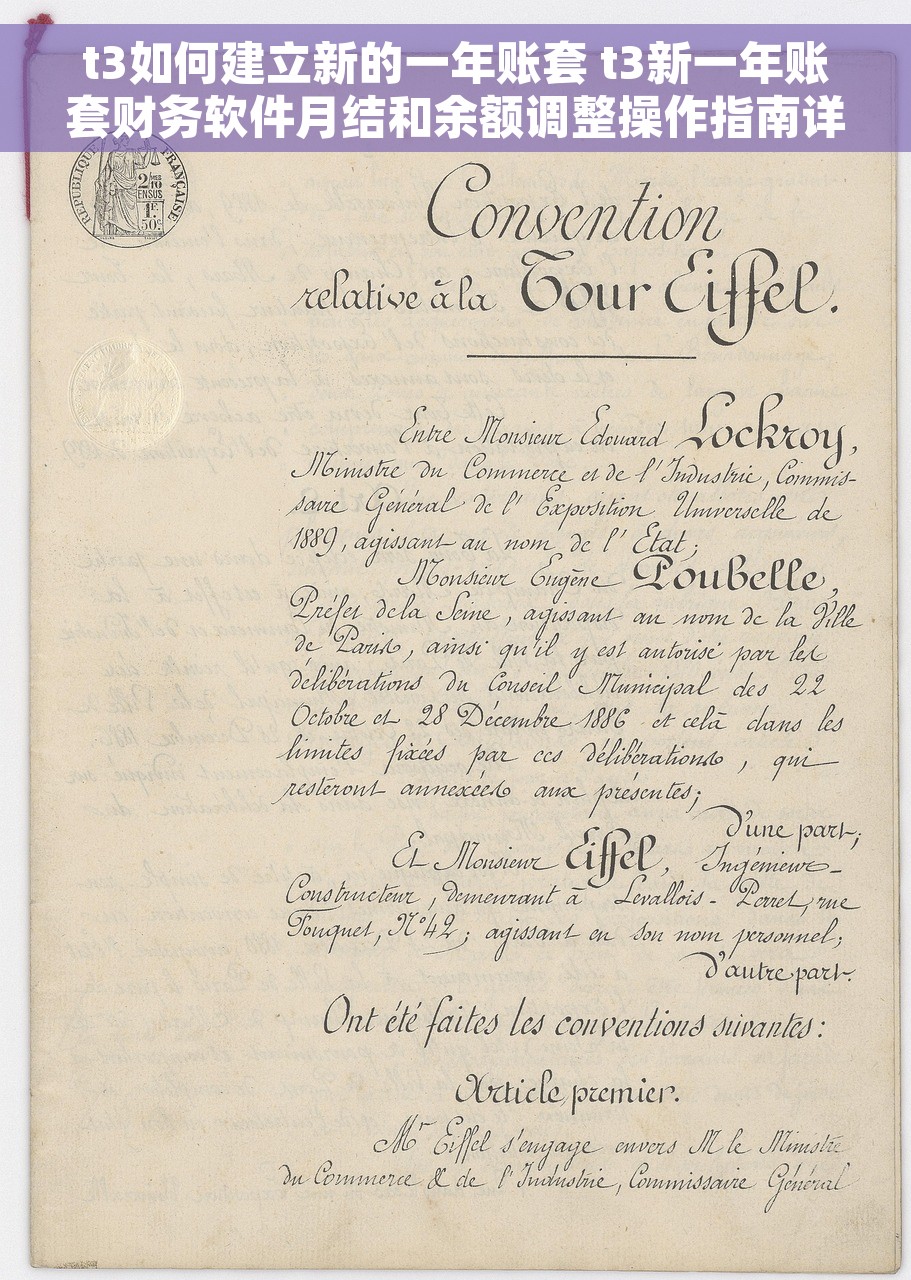 t3如何建立新的一年账套 t3新一年账
套财务软件月结和余额调整操作指南详
RÉPUBLIQUE FRANÇAISE
2/10
EN SUS
1F.
50c
Convention
relative à la Tour Eiffel.
Entre Monsieur Edouard Lockroy,
Ministre du Commerce et de l'Industrie, Commis-
saire Général de l'Exposition Universelle de
1889, agissant au nom de l'Etat;
Monsieur Eugène Poubelle,
Préfet de la Seine, agissant au nom de la Ville
de Paris, ainsi qu'il y est autorisé par les
délibérations du Conseil Municipal des 22
Octobre et 28 Décembre 1886 et celà dans les
limites fixées par ces délibérations, qui
resteront annexées aux présentes;
D'une part;
Et Monsieur Eiffel, Ingénieur-
Constructeur, demeurant à Levallois-Perret, rue
Fouquet, N° 42; agissant en son nom personnel;
D'autre part.
Ont été faites les conventions suivantes:
Article premier.
Mr Eiffel s'engage envers M le Ministre
du Commerce & de l'Industrie, Commissaire Général